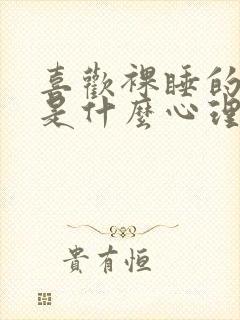 喜歡裸睡的
是什麼心理
貴有恒